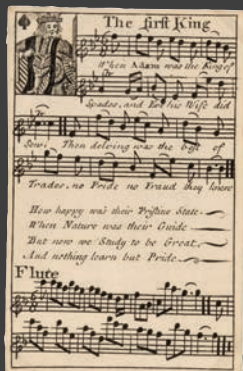 The first King
When Adam was the King of
Spades, and Eve his Wife did
Sow; Then delving was the best of
Trades, no Pride no Fraud they knew
How happy was their Pristine State
When Nature was their Guide
But now we Study to be Great
And nothing learn but Pride
Flute